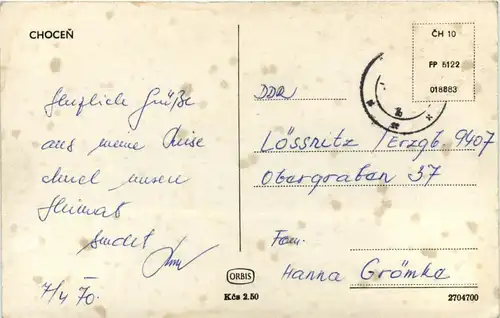 CHOCEŇ
Herzliche Grüße
aus meine Reise
durch unsere
Heimat
sendet
7/4 70.
ČH 10
PP 5122
018883
DDR
Lössnitz /Erzgb. 9407
Obergraben 37
Fam.
Hanna Grömke
ORBIS
Kčs 2.50
2704700